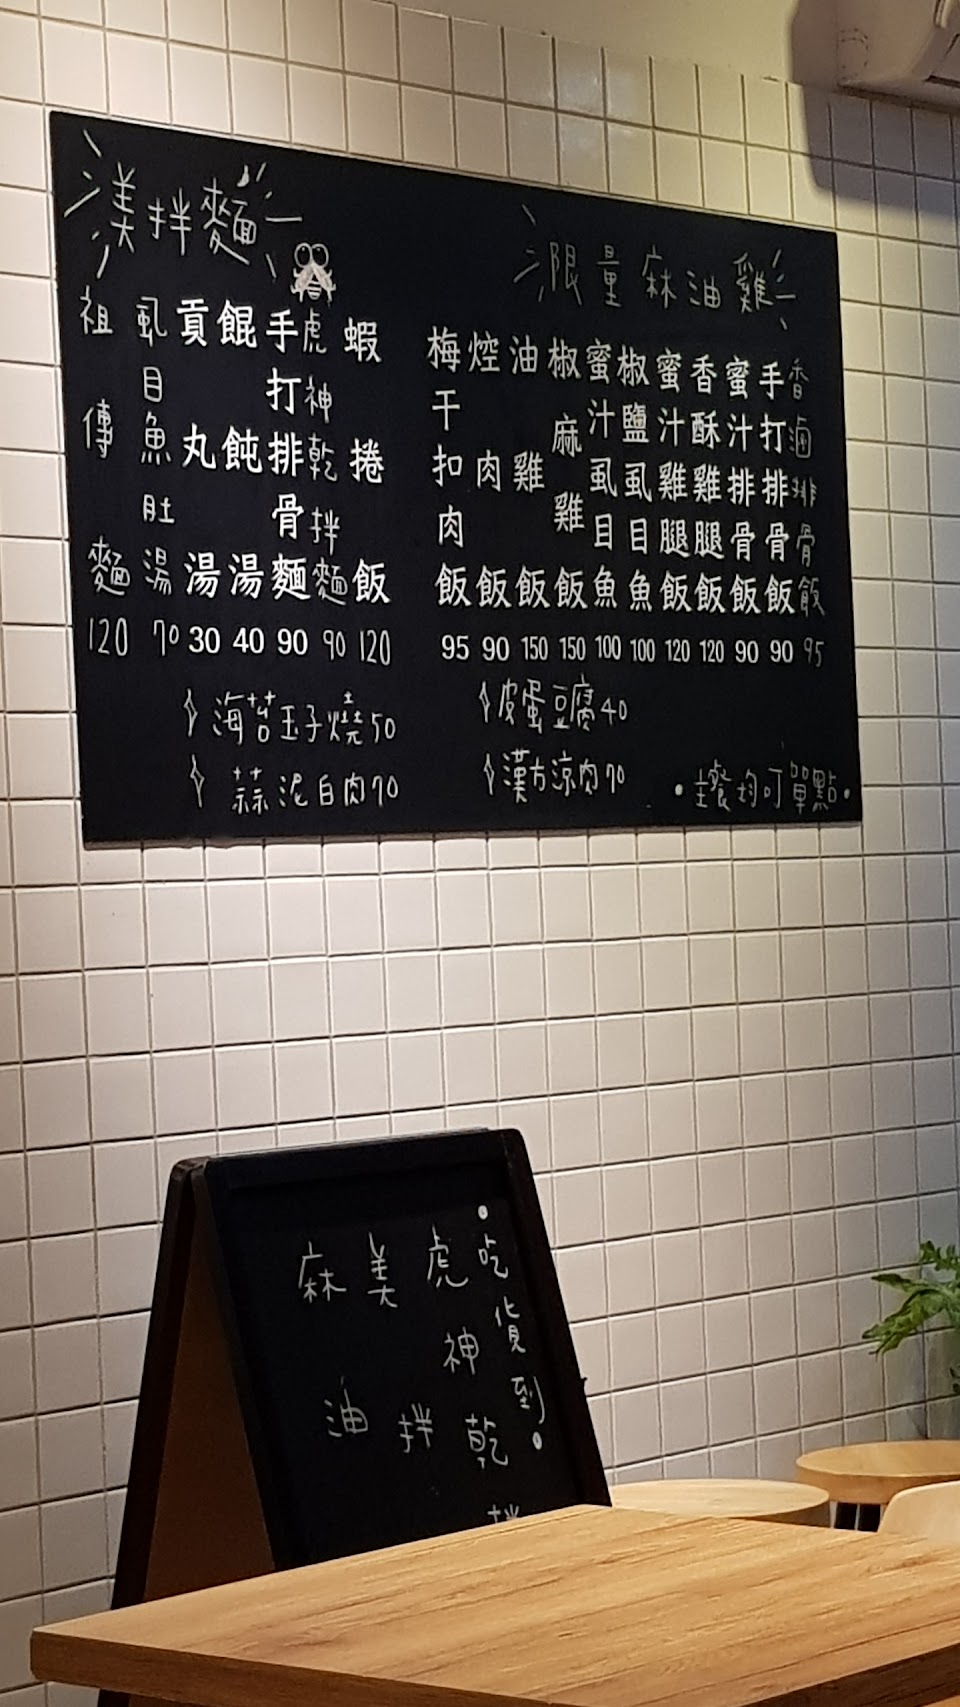 渼拌麵
限量麻油雞
祖傳麵 120
虱目魚肚湯 70
貢丸湯 30
餛飩湯 40
手打排骨麵 90
虎神乾拌麵 90
蝦捲飯 120
梅干扣肉飯 95
焢肉飯 90
油雞飯 150
椒麻雞飯 150
蜜汁虱目魚 100
椒鹽虱目魚 100
蜜汁雞腿飯 120
香酥雞腿飯 120
蜜汁排骨飯 90
手打排骨飯 90
香滷排骨飯 95
海苔玉子燒50
蒜泥白肉70
皮蛋豆腐40
漢方涼肉70
•主餐均可單點•
•吃貨到•
虎神乾拌
美拌
麻油